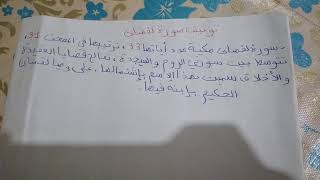 تعريف سورة لقمان
- سورة لقمان مكية عدد آياتها 33، ترتيبها في المصحف 31،
تتوسط بين سورتي الروم والسجدة، تعالج قضايا العقيدة
والأخلاق سميت بهذا الاسم بإشتمالها على وصايا لقمان
الحكيم لإبنه فيها.